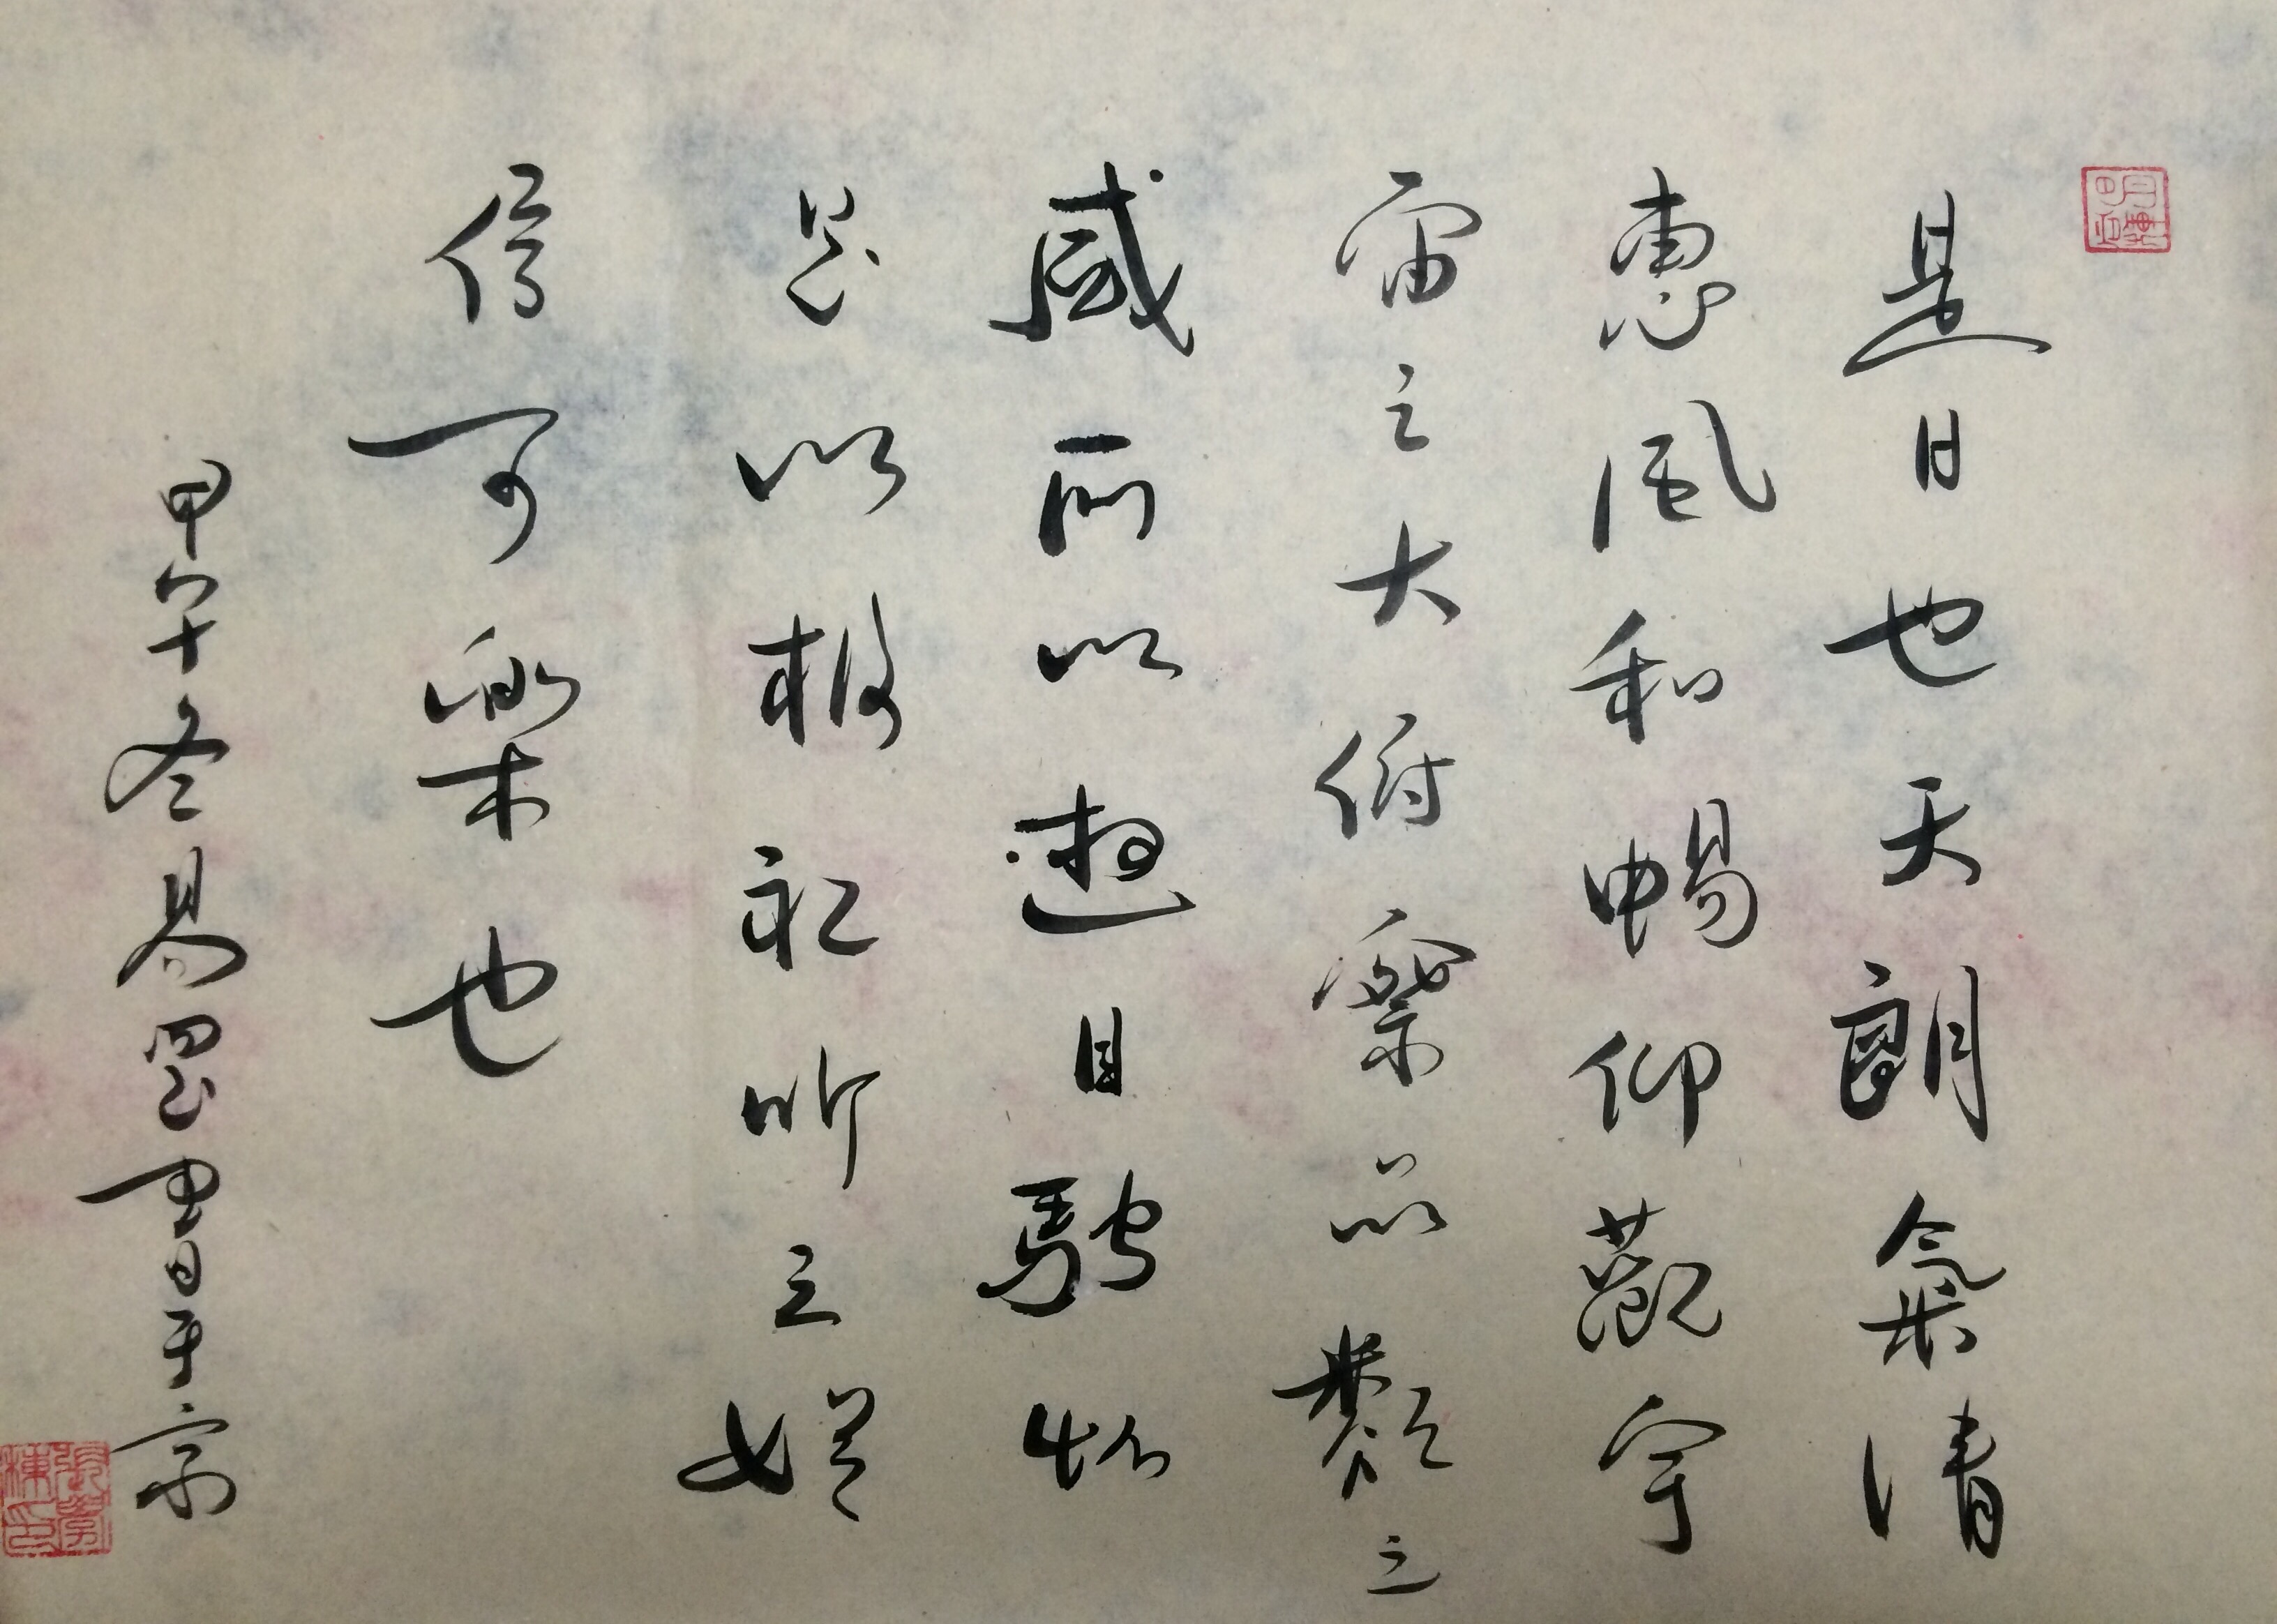 是日也天朗氣清
惠風和暢仰觀宇
宙之大俯察品類之
盛所以遊目騁懷
足以極視聽之娛
信可樂也
甲午冬易墨書於京